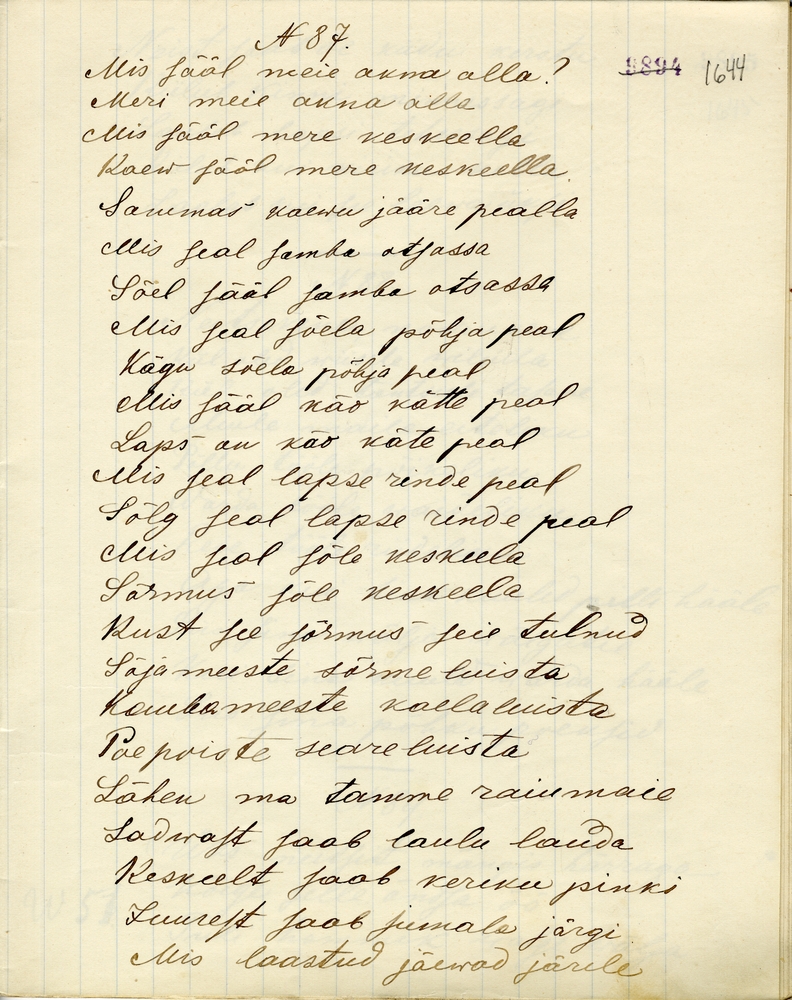 N 87.
9894 1644
Mis sääl meie akna alla?
Meri meie akna alla
Mis sääl mere keskeella
Kaew sääl mere keskeella.
Sammas kaewu jääre pealla
Mis seal samba otsassa
Sõel sääl samba otsassa
Mis seal sõela põhja peal
Kägu sõela põhja peal
Mis sääl käo kätte peal
Laps on käo käte peal
Mis seal lapse rinde peal
Sõlg seal lapse rinde peal
Mis seal sõle keskeela
Sõrmus sõle keskeella
Kust see sõrmus seie tulnud
Sõjameeste sõrmeluista
Kaubameeste kaelaluista
Poepoiste seareluista
Lähen ma tamme raiumaie
Ladwast saab laulu lauda
Keskeelt saab keriku pinki
Juurest saab jumala järgi
Mis laastud jäewad järele